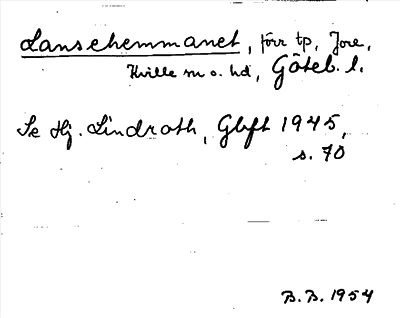 Lansehemmanet, förr tp, Jore,
Kville sn o. hd, Göteb. l.
Se Hj. Lindroth, Gbft 1945,
s. 70
B. B. 1954